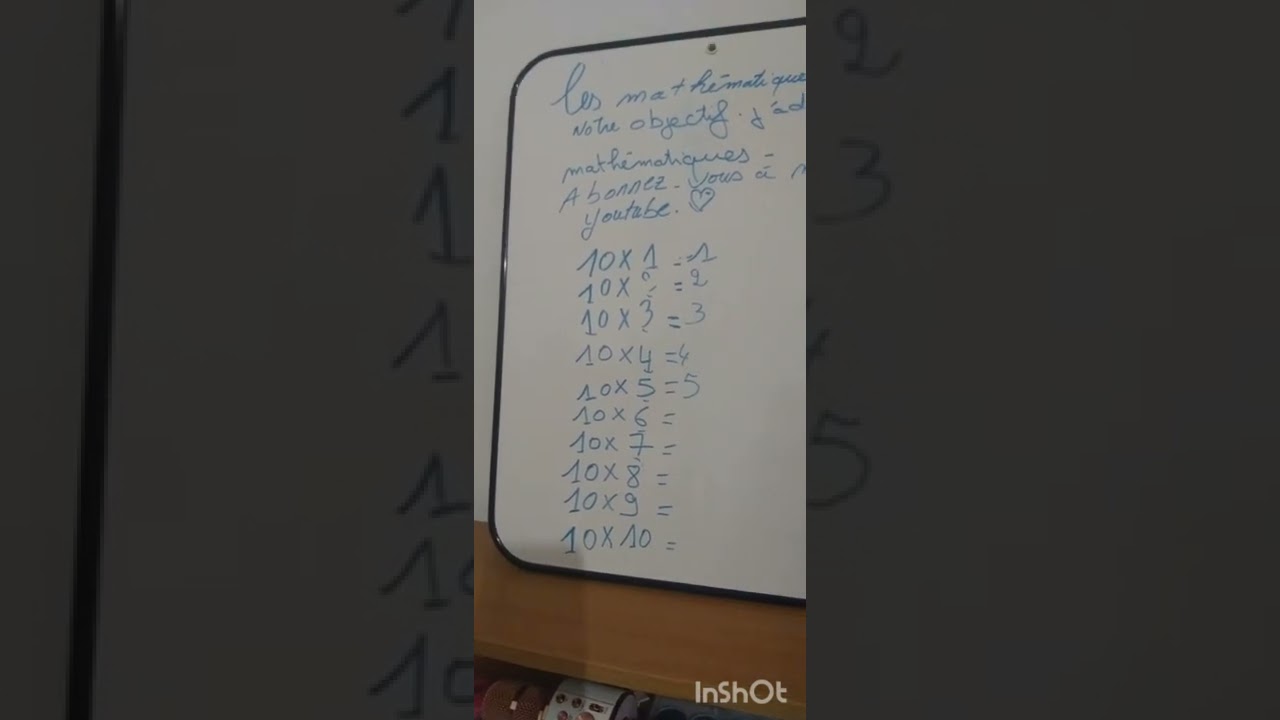 les mathématique
Notre objectif. j'ad
mathématiques -
Abonnez-vous à m
youtube. ♡
10 x 1 = 1
10 x 2 = 2
10 x 3 = 3
10 x 4 = 4
10 x 5 = 5
10 x 6 =
10 x 7 =
10 x 8 =
10 x 9 =
10 x 10 =
InShOt